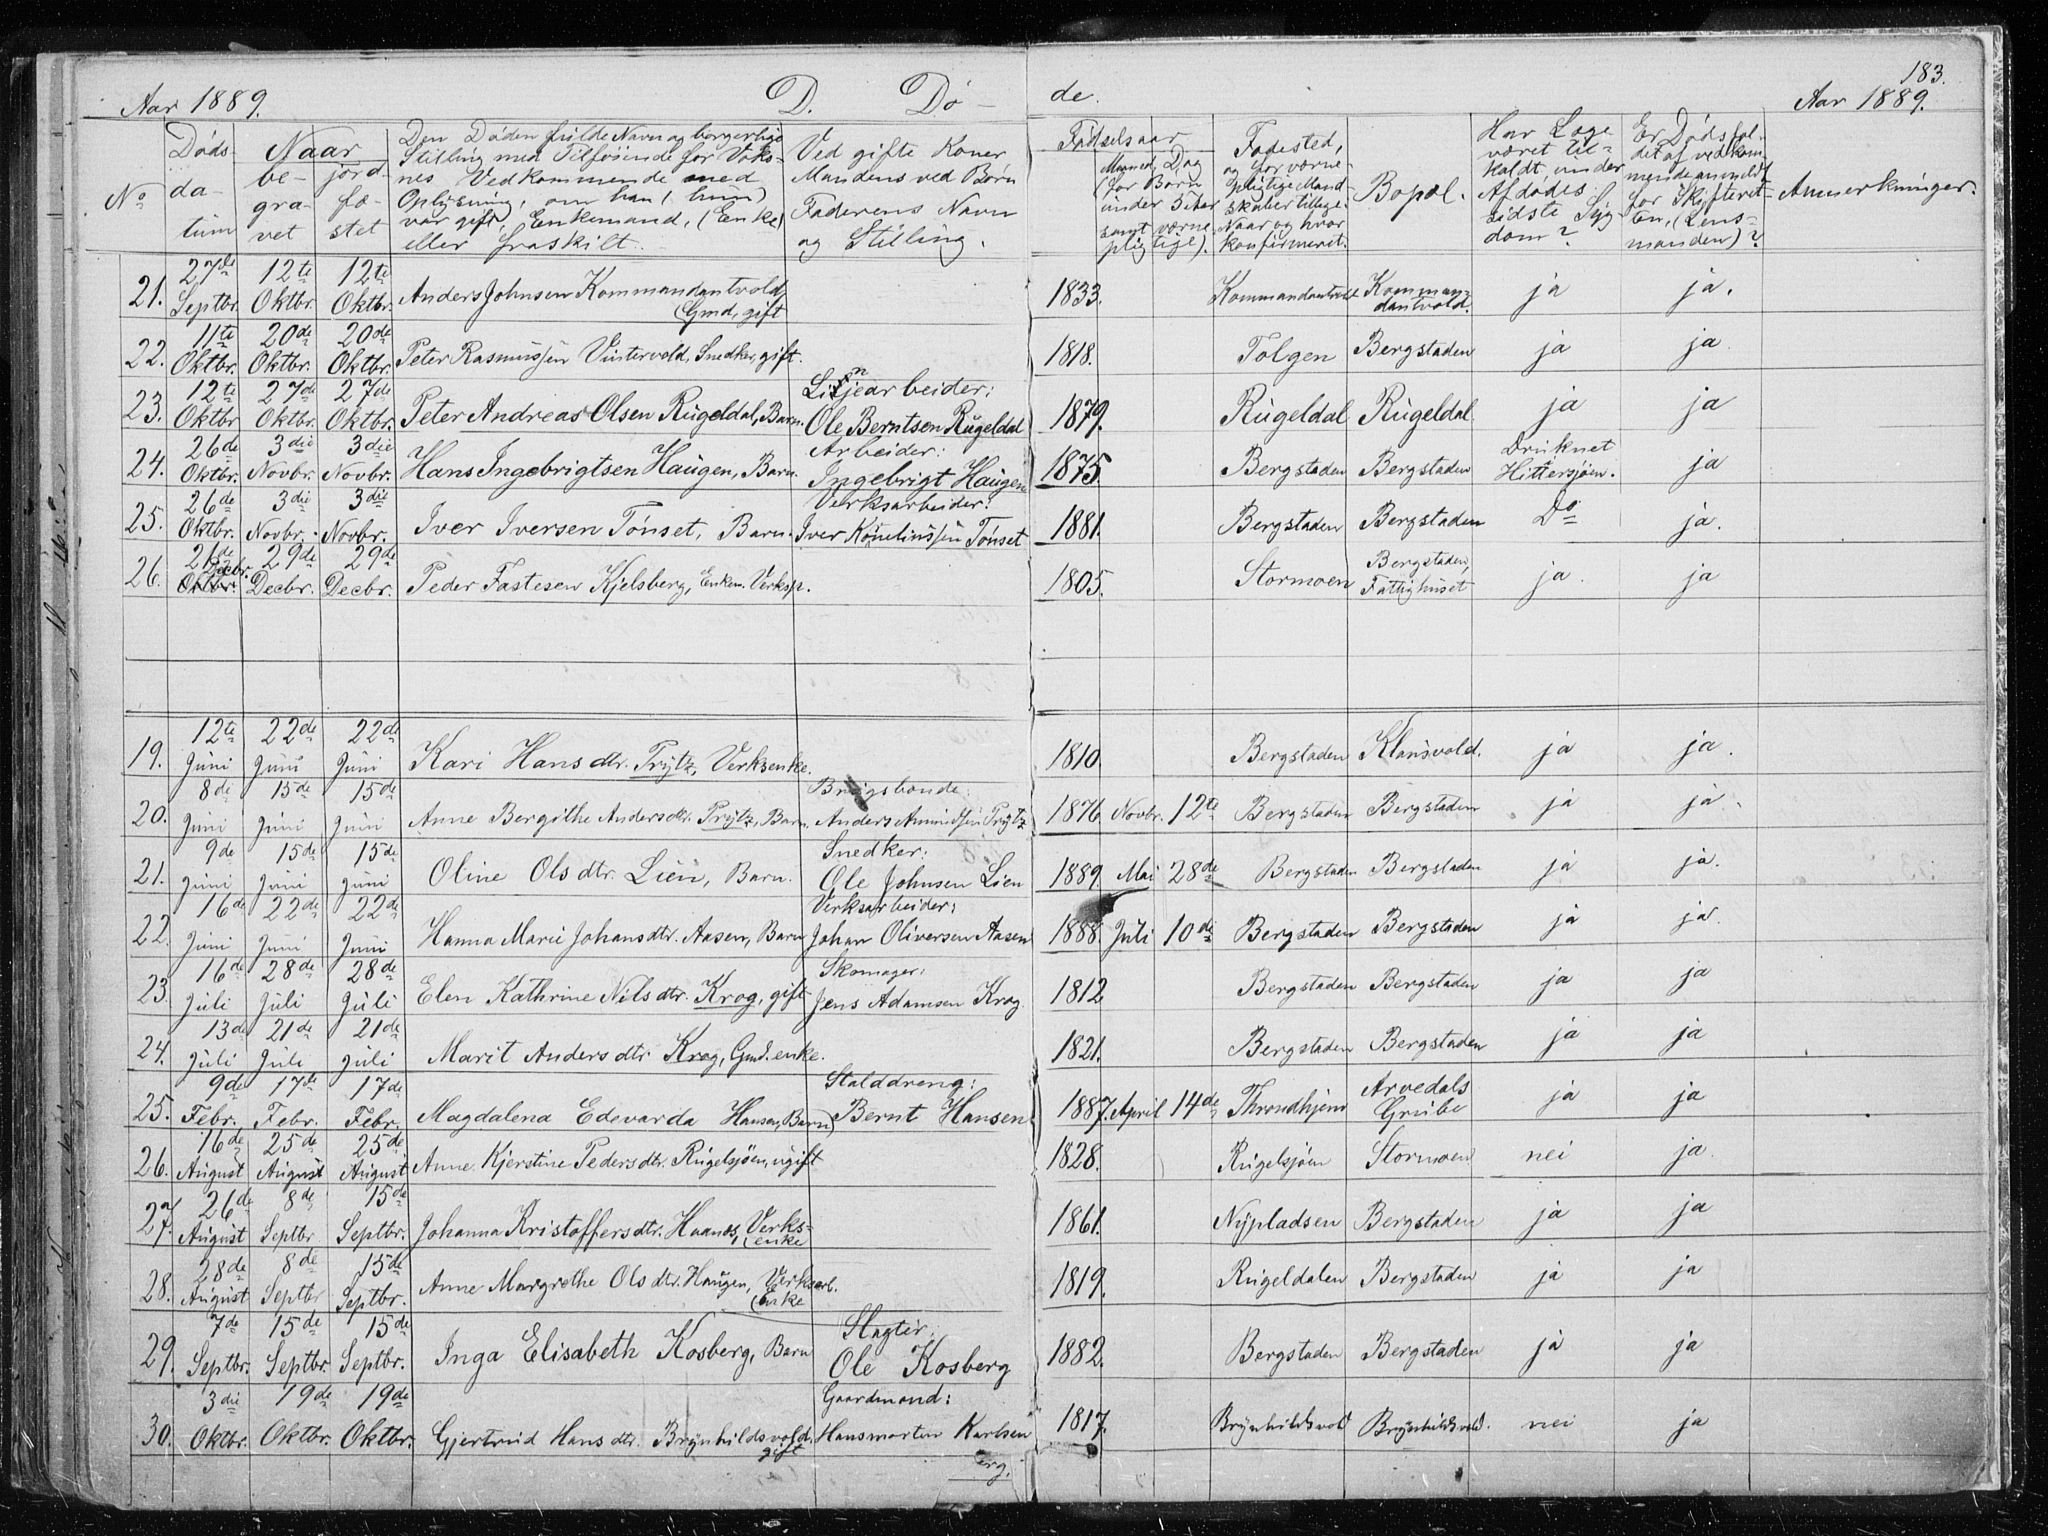 183.
Aar 1889. D. Dö- de. Aar 1889.
No
Döds-
da-
tum
Naar
be-
gra-
vet
jord-
fæ-
stet
Den Dödes fulde Navn og borgerlige
Stilling med Tilföiende for Voks-
nes Vedkommende med
Oplysning, om han (hun)
var gift, Enkemand, (Enke)
eller fraskilt.
Ved gifte Koner
Mandens ved Børn
Faderens Navn
og Stilling.
Födselsaar
Maaned, Dag
(for Børn
under 5 Aar
samt værne-
plig tige).
Födested,
og for værne-
pligtige Mand-
skaber tillige.
Naar og hvor
konfirmeret.
Bopæl.
Har Læge
været til-
kaldt under
Afdödes
sidste Syg-
dom?
Er Dödsfal-
det af vedkom-
mende anmeldt
for Skifteret-
ten, (Lens-
manden)?
Anmerkninger.
21. 27de Septbr. 12te Oktbr. 12te Oktbr. Anders Johnsen Kommandantvold, Gmd, gift 1833. Kommandantvold Komman-
dantvold. ja ja.
22. 11te Oktbr. 20de Oktbr. 20de Oktbr. Peter Rasmussen Vintervold, Snedker, gift. 1818. Tolgen Bergstaden ja ja.
23. 12te Oktbr 27de Oktbr. 27de Oktbr. Peter Andreas Olsen Rugeldal, Barn. Linjearbeider:
Ole Berntsen Rugeldal 1879. Rugeldal Rugeldal ja ja
24. 26de Oktbr. 3die Novbr. 3die Novbr. Hans Ingebrigtsen Haugen, Barn. Arbeider:
Ingebrigt Haugen 1875. Bergstaden Bergstaden Druknet
Hittersjöen. ja
25. 26de Oktbr. 3die Novbr. 3die Novbr. Iver Iversen Tönset, Barn. Verksarbeider:
Iver Kornliussen Tönset 1881. Bergstaden Bergstaden Do ja.
26. 21de Oktbr. Decbr. 29de Decbr. 29de Decbr. Peder Fastesen Kjelsberg, Enkem. Verksp. 1805. Stormoen Bergstaden,
Fattighuset ja. ja
19. 12te Juni 22de Juni 22de Juni Kari Hansdtr. Prytz, Verksenke. 1810. Bergstaden Klausvold. ja ja.
20. 8de Juni 15de Juni 15de Juni Anne Bergithe Andersdtr. Prytz, Barn. Brugsbonde:
Anders Amundsen Prytz 1876 Novbr. 12te Bergstaden Bergstaden ja ja.
21. 9de Juni 15de Juni 15de Juni Oline Olsdtr. Lien, Barn. Snedker:
Ole Johnsen Lien 1889. Mai 28de Bergstaden Bergstaden ja ja.
22. 16de Juni 22de Juni 22de Juni Hanna Marie Johansdtr. Aasen, Barn Verksarbeider:
Johan Oliversen Aasen 1888. Juli 10de Bergstaden Bergstaden ja ja.
23. 16de Juli 28de Juli 28de Juli Elen Kathrine Nilsdtr. Krog, gift Skomager:
Jens Adamsen Krog. 1812 Bergstaden Bergstaden ja ja
24. 13de Juli 21de Juli 21de Juli Marit Andersdtr Krog, Gmd. enke. 1821. Bergstaden Bergstaden ja ja
25. 9de Febr. 17de Febr. 17de Febr. Magdalena Edevarda Hansen, Barn Stalddreng:
Bernt Hansen 1887. April 14de Throndhjem Arvedals
Grube ja ja
26. 16de August 25de August 25de August Anne Kjerstine Pedersdtr. Rugelsjöen, ugift 1828. Rugelsjöen Stormoen nei ja.
27. 26de August 8de Septbr 15de Septbr. Johanna Kristoffersdtr. Haanes, Verks-
enke 1861. Nypladsen Bergstaden ja ja
28. 28de August 8de Septbr 15de Septbr. Anne Margrethe Olsdtr. Haugen, Verksarb.
Enke 1819. Rugeldalen Bergstaden ja ja
29. 7de Septbr. 15de Septbr. 15de Septbr. Inga Elisabeth Kosberg, Barn Slagter:
Ole Kosberg 1882. Bergstaden Bergstaden ja ja
30. 3die Oktbr. 19de Oktbr. 19de Oktbr. Gjertrud Hansdtr. Brynhildsvold.
gift Gaardmand:
Hansmorten Karlsen 1817. Brynhildsvold Brynhildsvold. nei ja